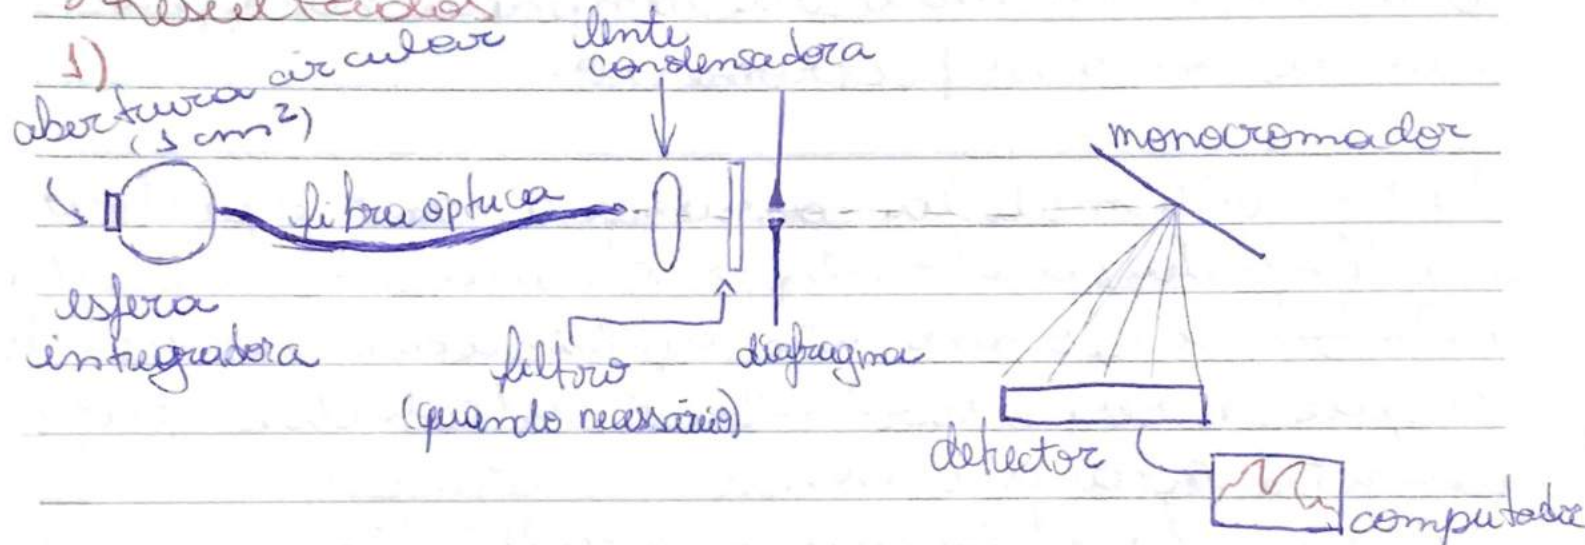 Resultados
1)
abertura circular
(1 cm²)
lente
condensadora
monocromador
fibra óptica
esfera
integradora
filtro
(quando necessário)
diafragma
detector
computador